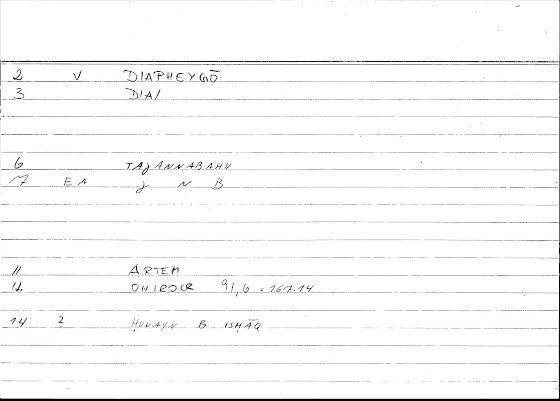 2 V DIAPHEYGŌ
3 DIA/
6 TAJANNABAHU
7 EA J N B
11 ARTEM
12 ONIROCR 91,6 = 167.14
14 2 ḤUNAYN B ISḤĀQ